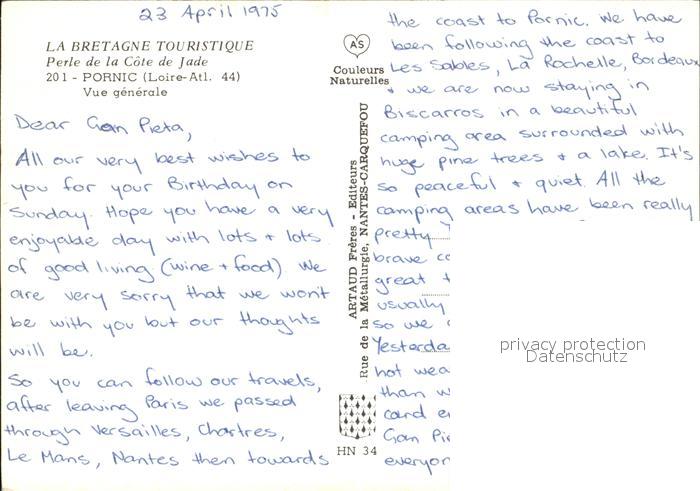 23 April 1975
LA BRETAGNE TOURISTIQUE
Perle de la Côte de Jade
201 - PORNIC (Loire-Atl. 44)
Vue générale
AS
Couleurs
Naturelles
ARTAUD Frères - Editeurs
Rue de la Métallurgie, NANTES-CARQUEFOU
HN 34
Dear Gan Pieta,
All our very best wishes to
you for your Birthday on
Sunday. Hope you have a very
enjoyable day with lots + lots
of good living (wine + food). We
are very sorry that we won't
be with you but our thoughts
will be.
So you can follow our travels,
after leaving Paris we passed
through Versailles, Chartres,
Le Mans, Nantes then towards
the coast to Pornic. We have
been following the coast to
Les Sables, La Rochelle, Bordeaux
+ we are now staying in
Biscarros in a beautiful
camping area surrounded with
huge pine trees + a lake. It's
so peaceful + quiet. All the
camping areas have been really
pretty
brave
great
usually
so we
Yesterda
hot wea
than w
card e
Gan Pie
everyon
privacy protection
Datenschutz